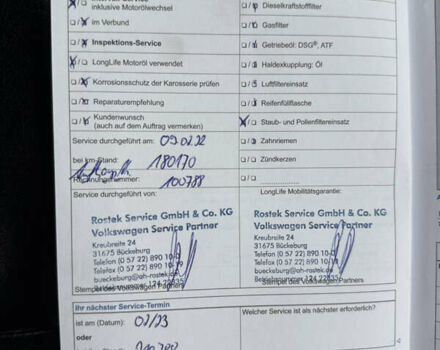 inklusive Motorölwechsel
im Verbund
Inspektions-Service
LongLife Motoröl verwendet
Korrosionsschutz der Karosserie prüfen
Reparaturempfehlung
Kundenwunsch
(auch auf dem Auftrag vermerken)
Dieselkraftstofffilter
Gasfilter
Getriebeöl: DSG®, ATF
Haldexkupplung: Öl
Luftfiltereinsatz
Reifenfüllflasche
Staub- und Pollenfiltereinsatz
Zahnriemen
Zündkerzen
Service durchgeführt am: 09.02.22
bei km-Stand: 180170
Rechnungsnummer: 100788
Service durchgeführt von:
LongLife Mobilitätsgarantie:
Rostek Service GmbH & Co. KG
Volkswagen Service Partner
Kreubreite 24
31675 Bückeburg
Telefon (0 57 22) 890 10-0
Telefax (0 57 22) 890 10
bueckeburg@ah-rostek.de
Stempel des Volkswagen Partners
Rostek Service GmbH & Co. KG
Volkswagen Service Partner
Kreubreite 24
31675 Bückeburg
Telefon (0 57 22) 890 10
Telefax (0 57 22) 890 10
bueckeburg@ah-rostek.de
Stempel des Volkswagen Partners
Ihr nächster Service-Termin
ist am (Datum): 02/23
oder
Welcher Service ist als nächster erforderlich?